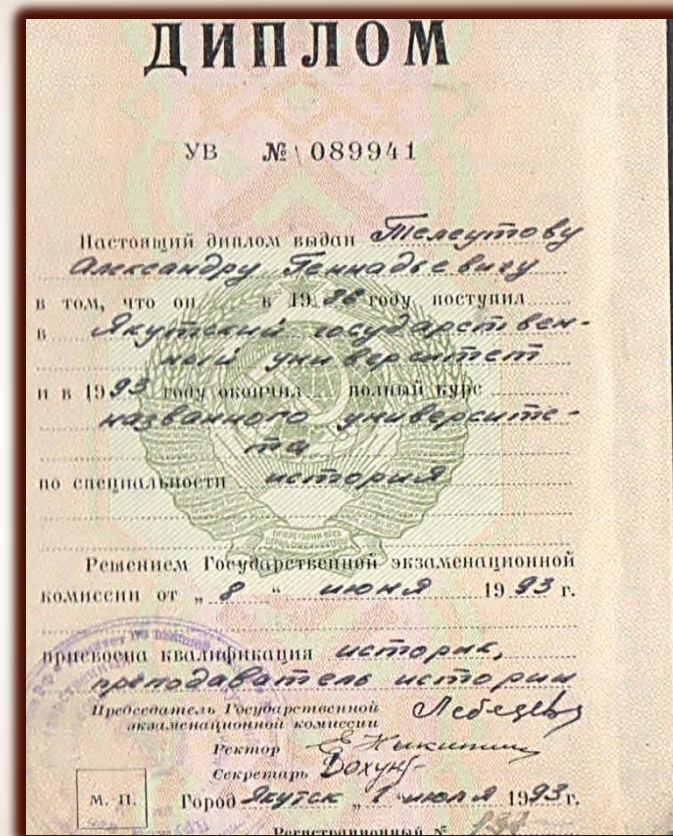 ДИПЛОМ
УВ № 089941
Настоящий диплом выдан Телеутову
Александру Геннадьевичу
в том, что он в 1986 году поступил
в Якутский государствен-
ный университет
и в 1993 году окончил полный курс
названного университе-
та
по специальности история
Решением Государственной экзаменационной
комиссии от „ 8 “ июня 1993 г.
присвоена квалификация историк,
преподаватель истории
Председатель Государственной
экзаменационной комиссии
Ректор
Секретарь
М. П. Город Якутск „ 1 июля 1993 г.
Регистрационный №